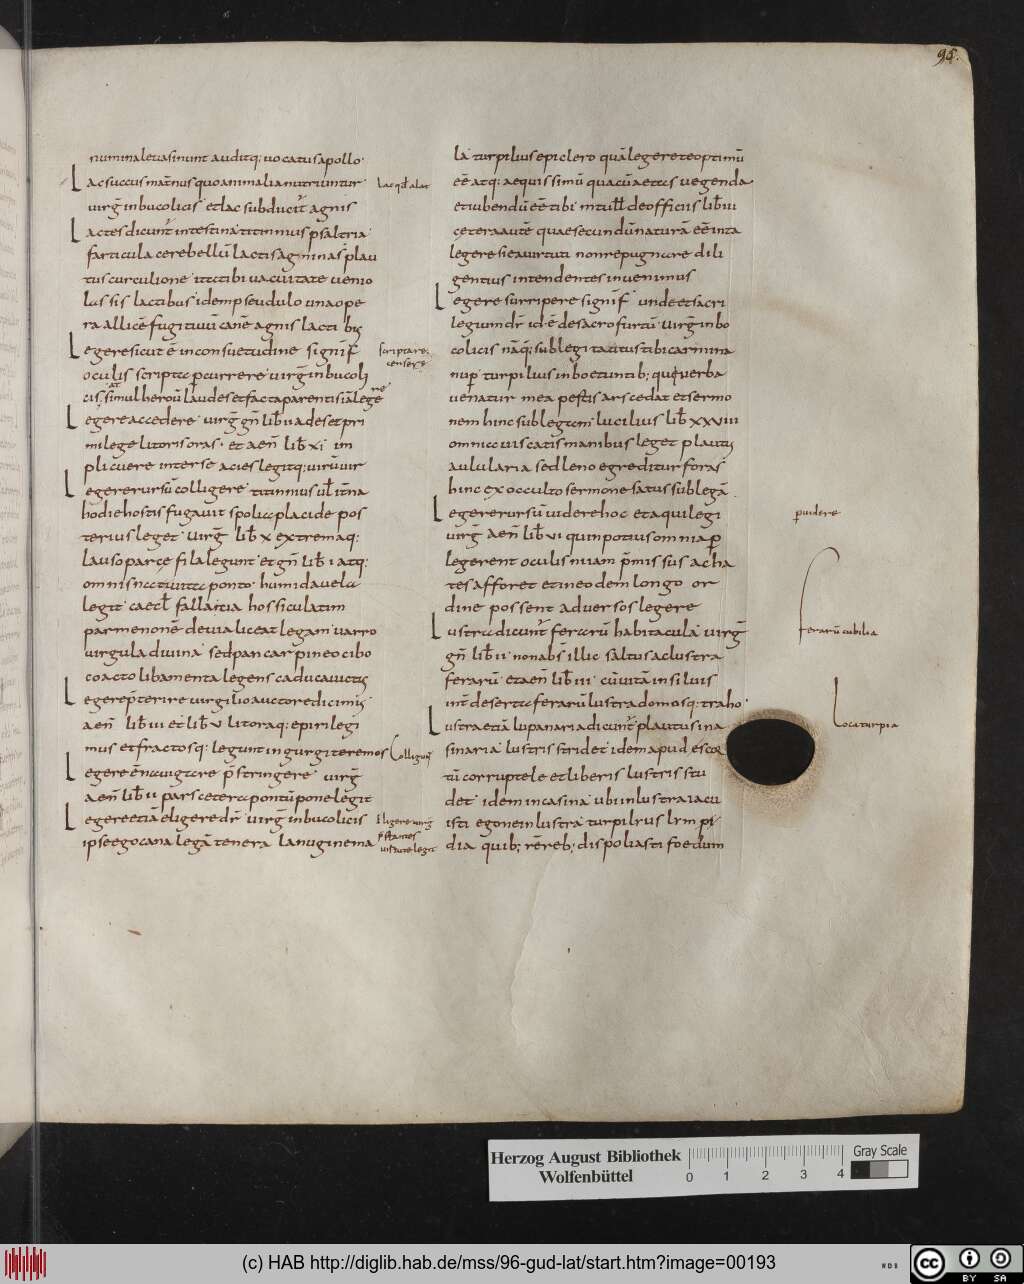 95.
numina leua sinunt auditq; uocatus apollo
Lac succus mat̄nus quo animalia nutriuntur
uirḡ in bucolicis et lac subducit̄ agnis
Lactes dicunt̄ intestina titinnius psaltria
farticula cerebellū lactis agninas plau
tus curculione ita tibi uacuitate uenio
lassis lactibus idem pseudulo una ope
ra allicē fugitiuū canē agnis lacti bus
Legere sicut ē in consuetudine signif̄
oculis scripta p̲currere uirḡ in bucoli
cis simul heroū laudes et facta parentis iā legere
at
Legere accedere uirḡ gn̄ lib̄ ii ades et pri
mi lege litoris oras et aen̄ lib̄ xi im
plicuere inter se acies legitq; uirū uir
Legere rursū colligere titinnius ul̄ it̄na
hodie hostis fugauit spolia placide pos
terius leget uirḡ lib̄ x extremaq;
lauso parce fila legunt et gn̄ lib̄ i atq;
omnis ponto humida uela
legit caecl̄ fallatia hos siculatim
parmenonē deuia liceat legam uarro
uirgula diuina sed pancarpineo cibo
coacto libamenta legens caduca uictis
Legere p̄terire uirgilio auctore dicimus
aen̄ lib̄ iii et lib̄ v litoraq; epiri legi
mus et fractosq; legunt in gurgite remos
Legere ē nauigare p̄stringere uirḡ
aen̄ lib̄ ii pars cetera pontū pone legit
Legere etiā eligere dr̄ uirḡ in bucolicis
ipse ego cana legā tenera lanugine ma
Lac qd̄ alat
scripta re
censere
Colligunt
Eligere uirḡ
la turpilius epiclero quā legere te optimū
eē atq; aequissimū qua cū aetas uegenda
et iubendū eē tibi m tull̄ de officiis lib̄ iii
cetera autē quae secundū naturā eē inta
legere si ea uirtuti non repugnare dili
gentius intendentes inuenimus
Legere surripere signif̄ unde et sacri
legium dr̄ id ē de sacro furtū uirḡ in bo
colicis nāq; sublegi tacitus tibi carmina
nup̲ turpilius in boetuntib; que uerba
uenatur mea pestis ars cedat et sermo
nem hinc sublegam lucilius lib̄ xxviii
omnia uiscatis manibus leget plautus
aulularia sed leno egreditur foras
hinc ex occulto sermone satus sublegā
Legere rursū uidere hoc et a qui legi
uirḡ aen̄ lib̄ vi quin potius omnia p̲
legerent oculis ni iam p̄missus acha
tes afforet et in eodem longo or
dine possent aduersos legere
Lustra dicunt̄ ferarū habitacula uirḡ
gn̄ lib̄ ii non abs̄ illic saltus ac lustra
ferarū et aen̄ lib̄ iii cū uitā in siluis
int̄ deserta ferarū lustra domosq; traho
Lustra etiā lupanaria dicunt̄ plautus in a
sinaria lustris stridet idem apud escor
tū corruptele et liberis lustris stu
det idem in casina ubi in lustra iacu
isti egone in lustra turpilius lrm pi
dia quib; rēreb; dispoliasti foedum
p̲uidere
ferarū cubilia
Loca turpia
Herzog August Bibliothek
Wolfenbüttel
0 1 2 3 4
Gray Scale
(c) HAB http://diglib.hab.de/mss/96-gud-lat/start.htm?image=00193
WDB
cc BY SA